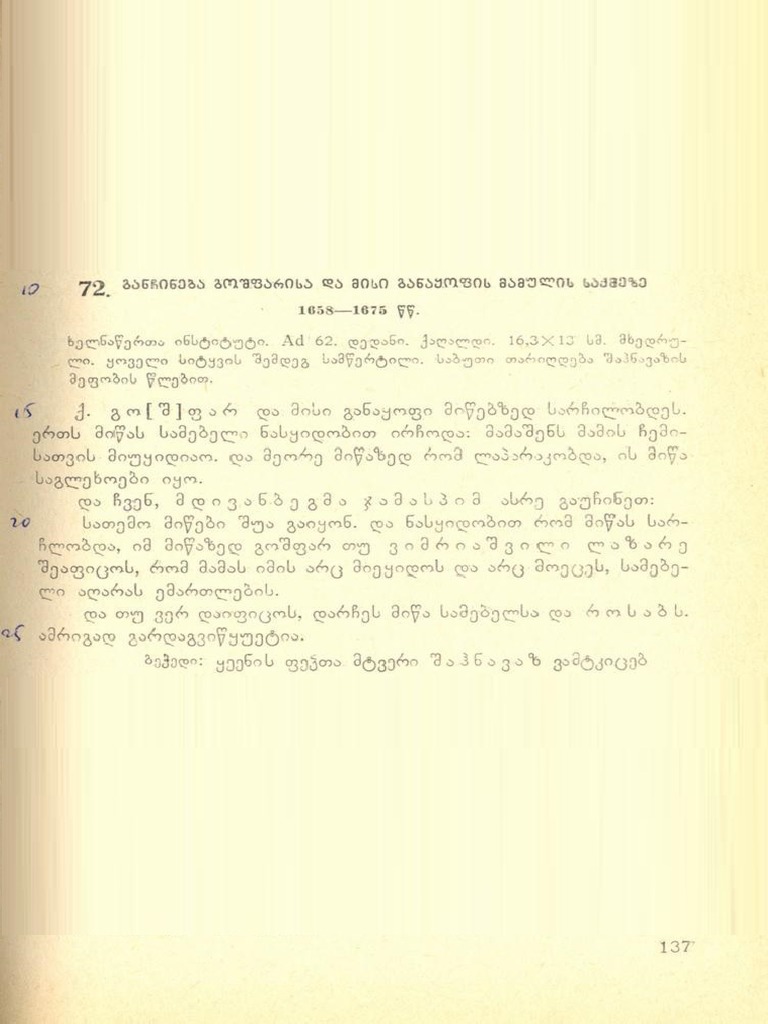 10 72. განჩინება გოშფარისა და მისი განაყოფის მამულის საქმეზე
1658—1675 წწ.
ხელნაწერთა ინსტიტუტი. Ad 62. დედანი. ქაღალდი. 16,3×13 სმ. მხედრუ-
ლი. ყოველი სიტყვის შემდეგ სამწერტილი. საბუთი თარიღდება შაჰნავაზის
მეფობის წლებით.
15 ქ. გო[შ]ფარ და მისი განაყოფი მიწებზედ სარჩილობდეს.
ერთს მიწას სამებელი ნასყიდობით ირჩოდა: მამაშენს მამის ჩემი-
სათვის მიუყიდიაო. და მეორე მიწაზედ რომ ლაპარაკობდა, ის მიწა
საგლეხოები იყო.
და ჩვენ, მდივანბეგმა ჯამასპიმ ასრე გაუჩინეთ:
20 სათემო მიწები შუა გაიყონ. და ნასყიდობით რომ მიწას სარ-
ჩლობდა, იმ მიწაზედ გოშფარ თუ ვიმრიაშვილი ლაზარე
შეაფიცოს, რომ მამას იმის არც მიეყიდოს და არც მოეცეს, სამებე-
ლი აღარას ემართლების.
და თუ ვერ დაიფიცოს, დარჩეს მიწა სამებელსა და როსაბს.
25 ამრიგად გარდაგვიწყუეტია.
ბეჭედი: ყეენის ფეჴთა მტვერი შაჰნავაზ ვამტკიცებ
137